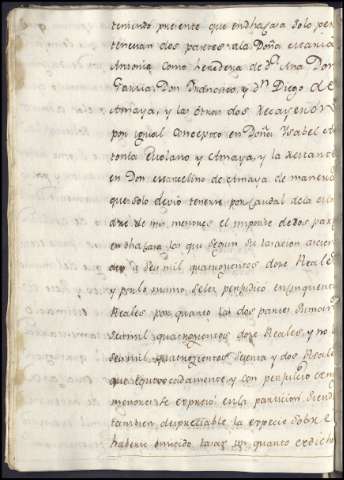 teniendo presente que en dha casa solo per
tenecian dos partes a la Doña Maria
Antonia como heredera de Dª Ana Don
Garzia, Don Francisco, y Dn Diego de
Amaya, y las otras dos recayeron
por igual concepto en Doña Ysabel An
tonia Cholano y Amaya, y la restante
en Don Marcelino de Amaya de manera
que solo devio tenerse por caudal de la
dre de mis menores el importe de dos par
en dha casa las que segun su tasacion ascien
den a seis mil quatrocientos doze Reales
y por lo mismo se les perjudicó en sinquenta
Reales por quanto las dos partes
seis mil quatrocientos doze Reales, y no
seis mil quatrocientos sesenta y dos Reales
que equivocadamente, y con perjuicio de mis
menores se expresó en la particion. Siendo
tambien despreciable la especie sobre
haberse omitido tasar un quarto